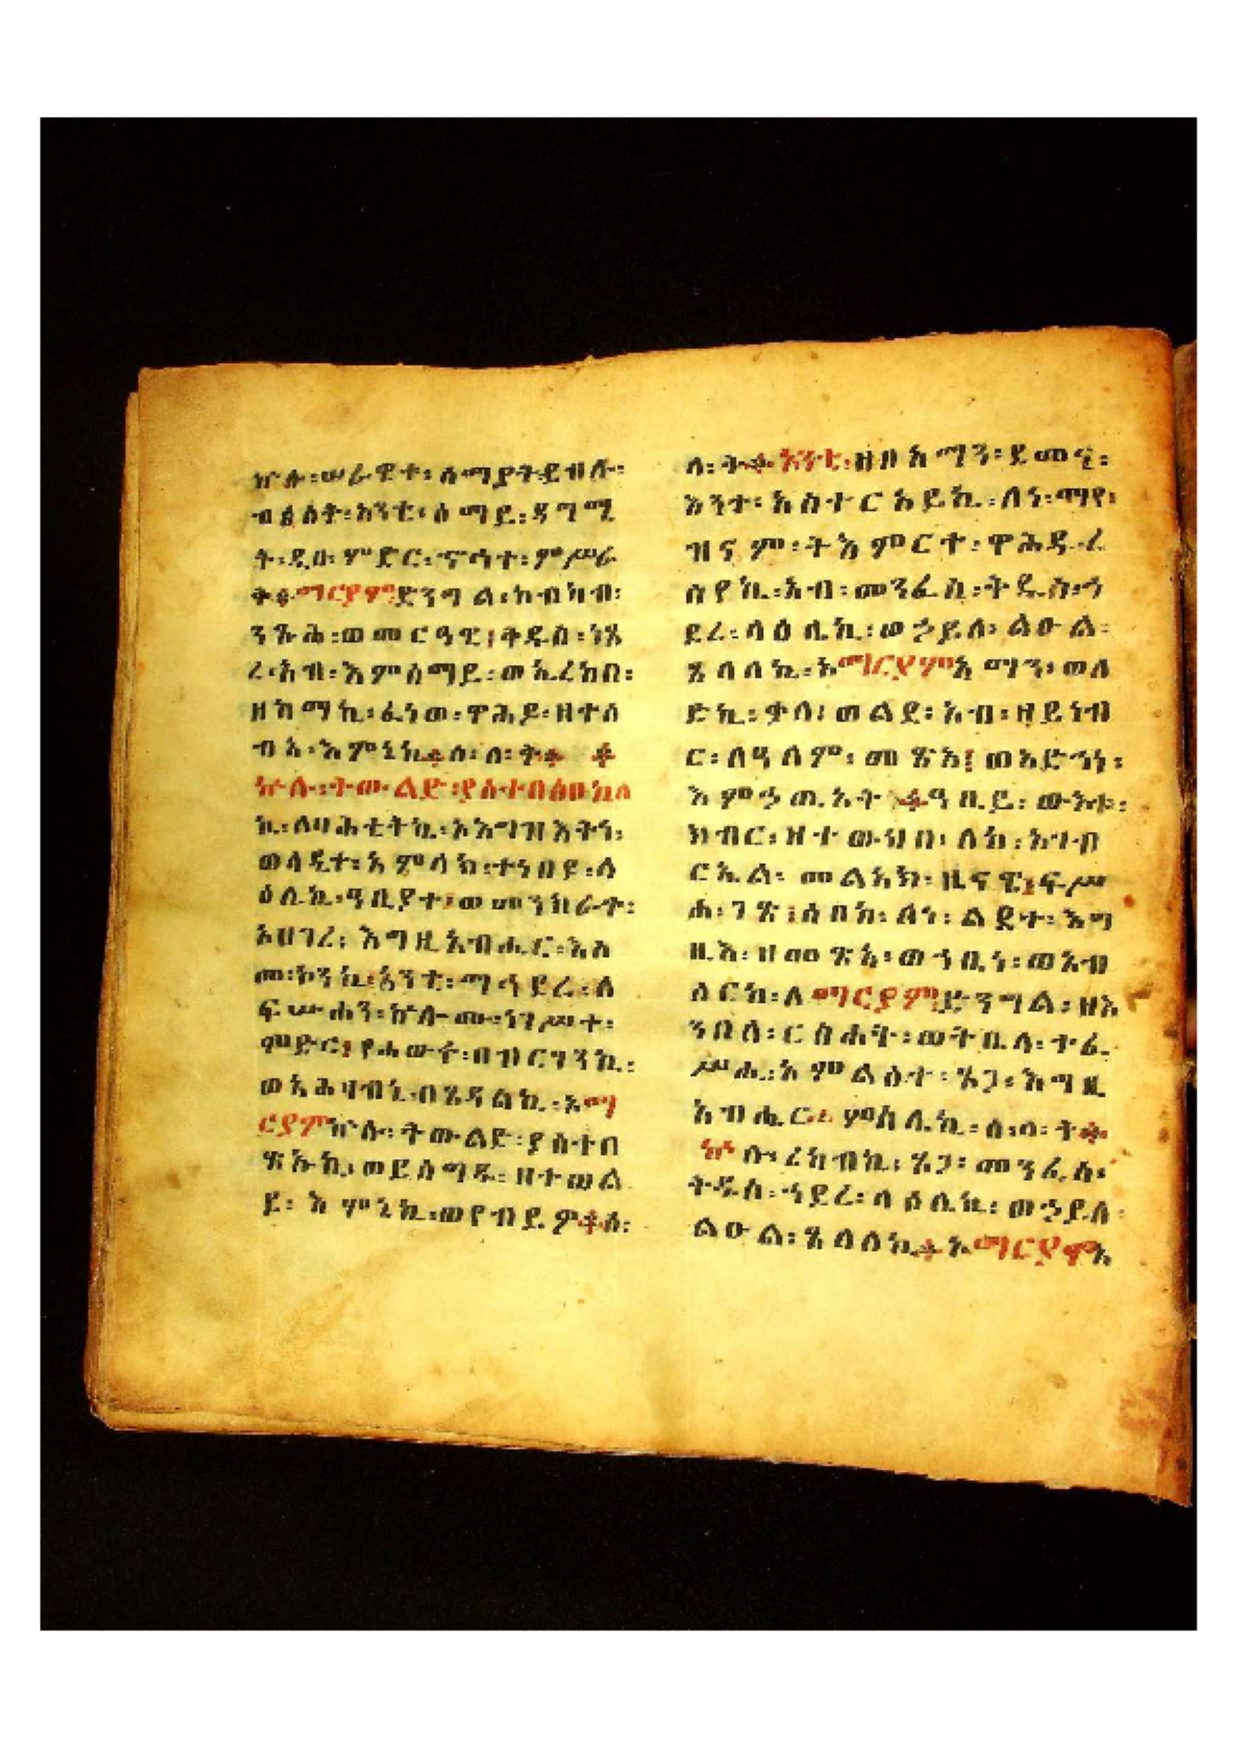 ኵሉ፡ሠራዊተ፡ሰማያት፡ይብሉ፡
ብፅዕት፡አንቲ፡ሰማይ፡ዳግሚ
ት፡ዲበ፡ምድር፡ኆኅተ፡ምሥራ
ቅ፨ማርያም፡ድንግል፡ከብካብ፡
ንጹሕ፡ወመርዓዊ፡ቅዱስ፡ነጸ
ረ፡አብ፡እምሰማይ፡ወኢረከበ፡
ዘከማኪ፡ፈነወ፡ዋሕዶ፡ዘተሰ
ብአ፡እምኔኪ፨ሰ፡ለ፡ቅ፨
ኵሉ፡ትውልድ፡ያስተበፅዑኪ፡ለ
ኪ፡ለባሕቲትኪ፡ኦእግዝእትነ፡
ወላዲተ፡አምላክ፡ተነበዩ፡ላ
ዕሌኪ፡ዓቢያተ፡ወመንክራተ፡
አሀገረ፡እግዚአብሔር፡እስ
መ፡ኮንኪ፡አንቲ፡ማኅደረ፡ለ
ፍሡሐን፡ኵሎሙ፡ነገሥተ፡
ምድር፡የሐውሩ፡በብርሃንኪ፡
ወአሕዛብኒ፡በጸዳልኪ፡ኦማ
ርያም፡ኵሉ፡ትውልድ፡ያስተበ
ፅዑኪ፡ወይሰግዱ፡ዘተወል
ደ፡እምኔኪ፡ወየብይዎ፨ሰ፡
ለ፡ቅ፨አንቲ፡ዘበአማን፡ደመና፡
እንተ፡አስተርአይኪ፡ለነ፡ማየ፡
ዝናም፡ትእምርተ፡ዋሕዱ፡ረ
ሰየኪ፡አብ፡መንፈስ፡ቅዱስ፡ኀ
ደረ፡ላዕሌኪ፡ወኃይለ፡ልዑል፡
ጸለለኪ፡ኦማርያም፡አማን፡ወለ
ድኪ፡ቃለ፡ወልደ፡አብ፡ዘይነብ
ር፡ለዓለም፡መጽአ፡ወአድኀነነ፡
እምኃጢአት፨ዓቢይ፡ውእቱ፡
ክብር፡ዘተውህበ፡ለከ፡ኦገብ
ርኤል፡መልአክ፡ዜናዊ፡ፍሥ
ሐ፡ገጽ፡ሰበከ፡ለነ፡ልደተ፡እግ
ዚእ፡ዘመጽአ፡ወኀቤነ፡ወአብ
ሰርከ፡ለማርያም፡ድንግል፡ዘእ
ንበለ፡ርስሐት፡ወትቤላ፡ተፈ
ሥሒ፡ኦምልዕተ፡ጸጋ፡እግዚ
አብሔር፡ምስሌኪ፡ሰ፡ለ፡ቅ፨
ረከብኪ፡ጸጋ፡መንፈስ፡
ቅዱስ፡ኀደረ፡ላዕሌኪ፡ወኃይለ፡
ልዑል፡ጸለለኪ፨ኦማርያም፡አ